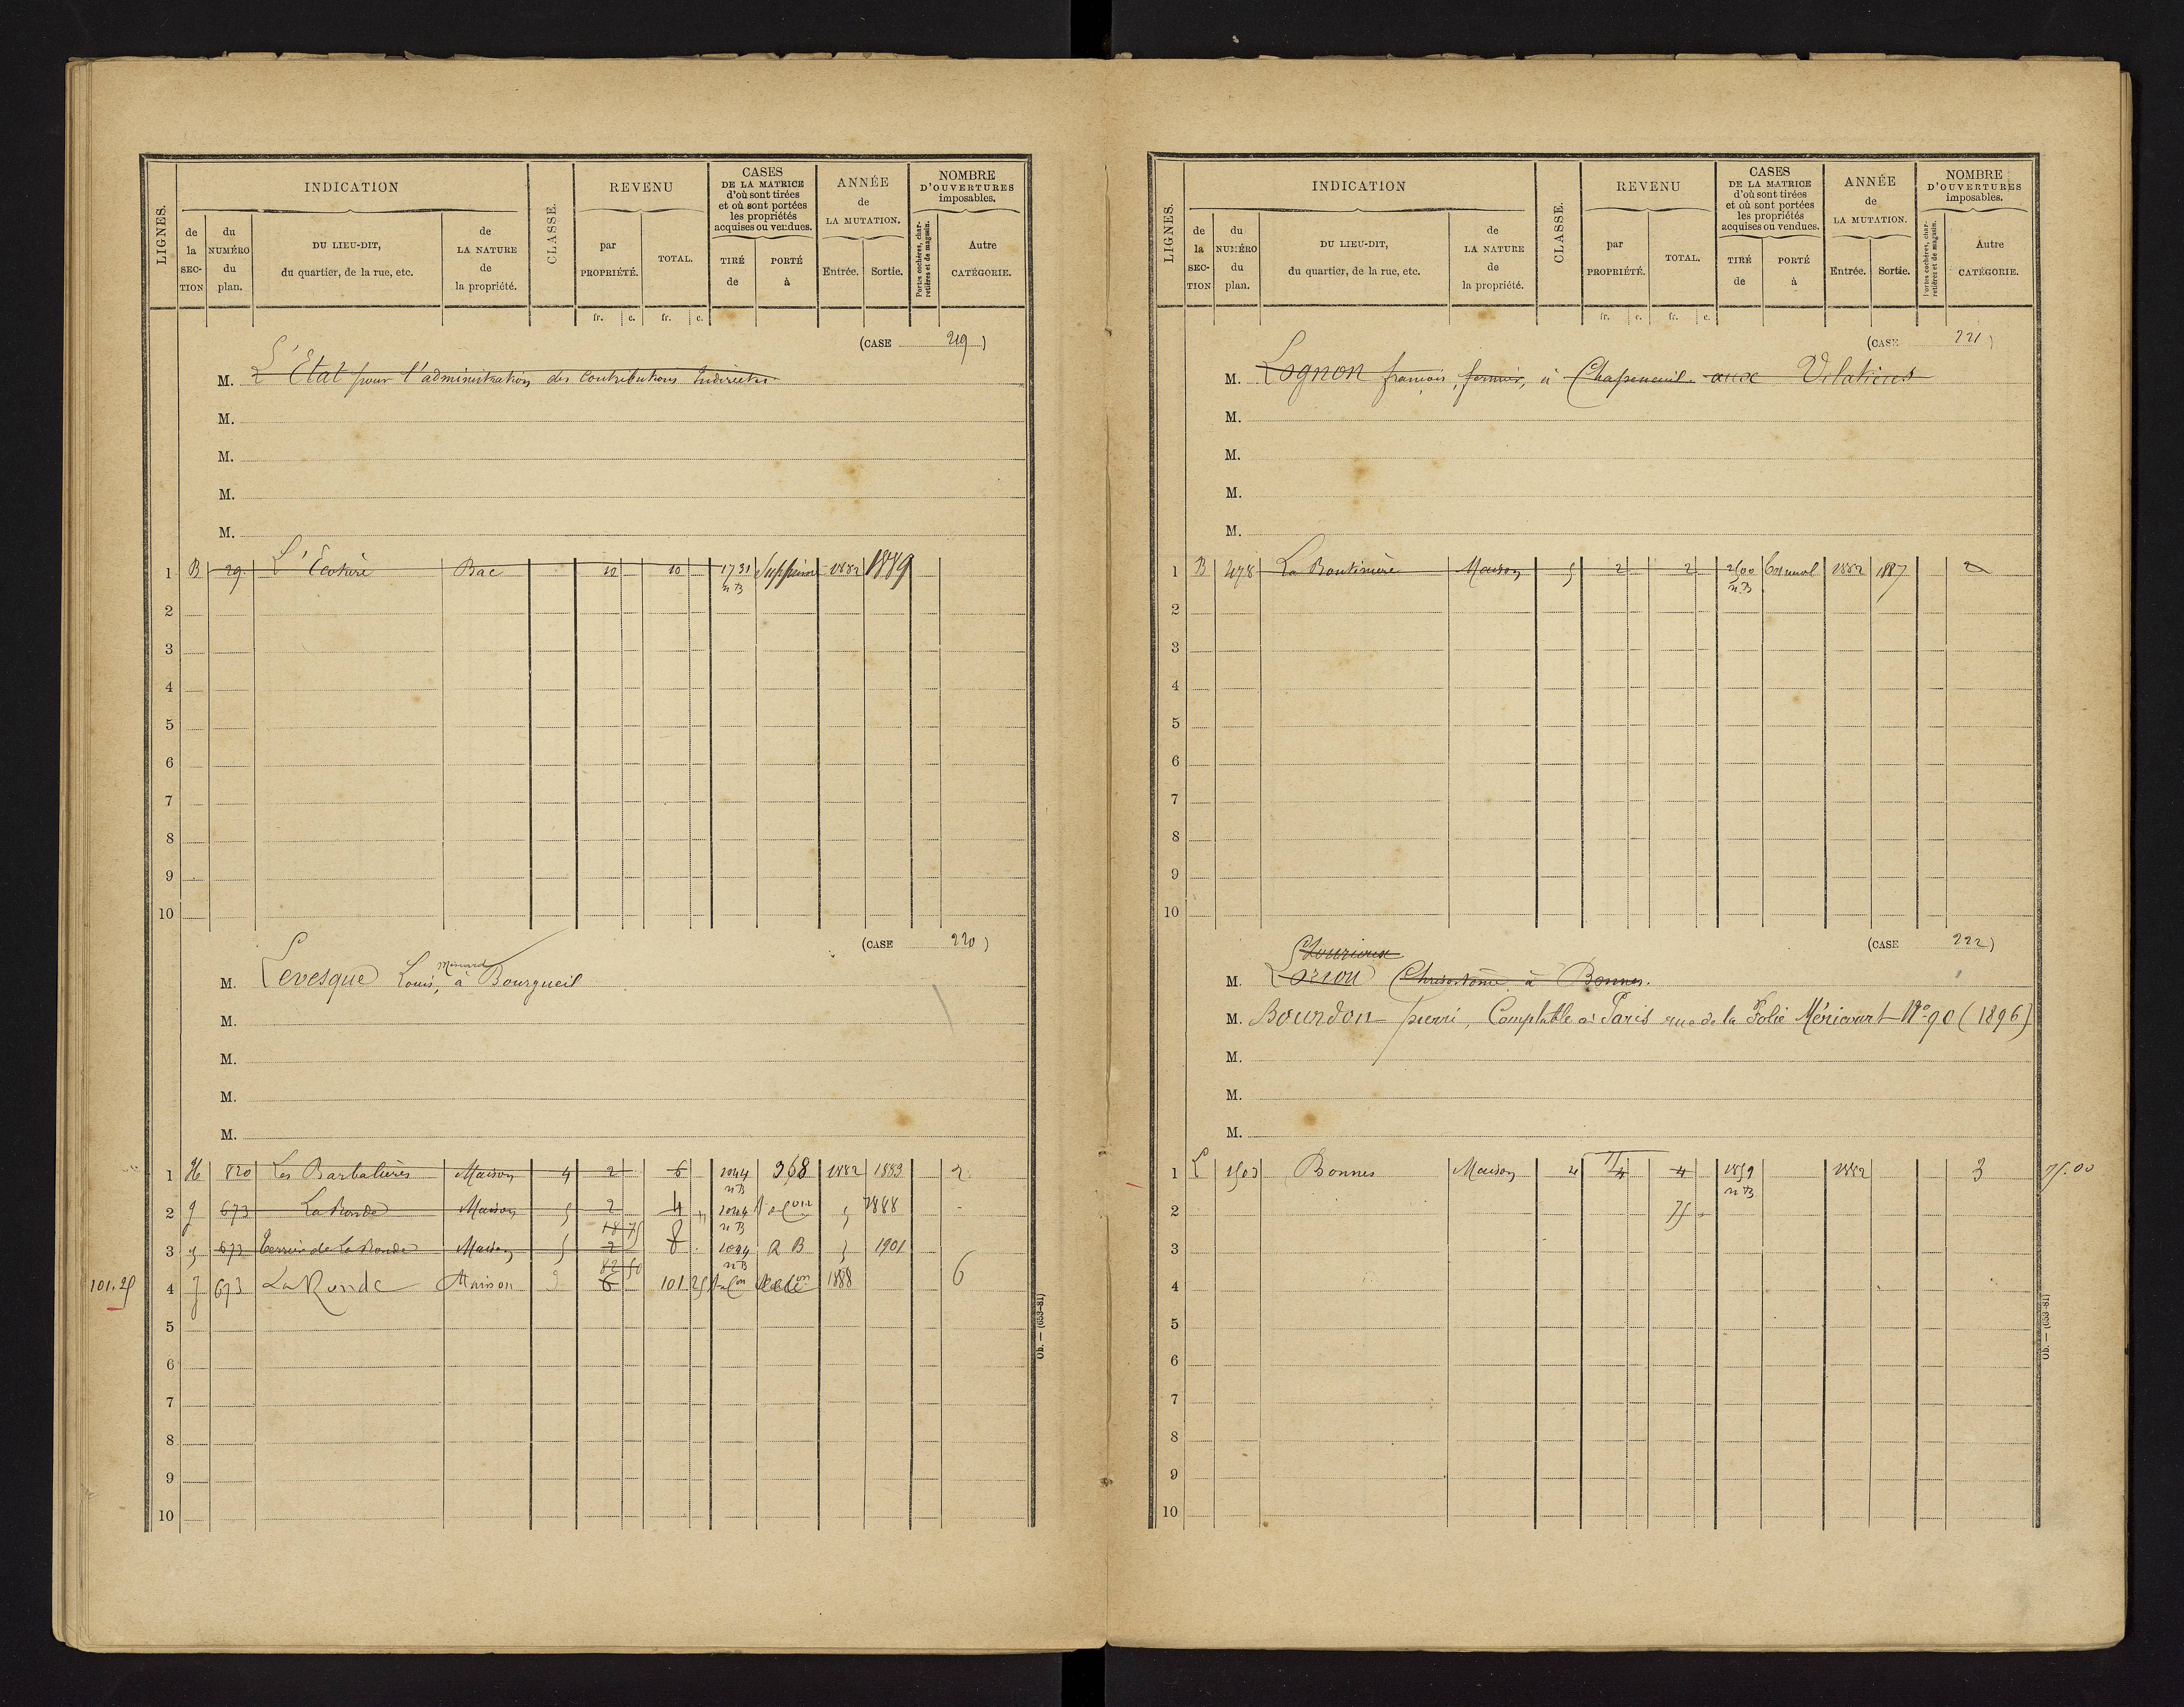 LIGNES.
INDICATION
de la SECTION
du NUMÉRO du plan.
DU LIEU-DIT, du quartier, de la rue, etc.
de LA NATURE de la propriété.
CLASSE.
REVENU
par PROPRIÉTÉ.
TOTAL.
CASES DE LA MATRICE d'où sont tirées et où sont portées les propriétés acquises ou vendues.
TIRÉ de
PORTÉ à
ANNÉE de LA MUTATION.
Entrée.
Sortie.
NOMBRE D'OUVERTURES imposables.
Portes cochères, charretières et de magasin.
Autre CATÉGORIE.
fr. c. fr. c.
(CASE 219)
M. L'Etat pour l'administration des Contributions Indirectes
M.
M.
M.
M.
1 B 29 Bac 10 10 1731 n B Supprimé 1882 1889
2
3
4
5
6
7
8
9
10
(CASE 220)
M. Levesque Louis, à Bourgueil
M.
M.
M.
M.
1 820 Les Barbalières Maison 4 2 6 1044 n B 368 1882 1883 2
2 J 673 La Ronde Maison 5 2 4 1044 n B 1888
3 673 de La Ronde Maison 5 18 75 2 8 1044 n B R B 1901
101.25 4 J 673 La Ronde Maison 82 50 6 101 25 1888 6
5
6
7
8
9
10
Ob. — (653-81)
LIGNES.
INDICATION
de la SECTION
du NUMÉRO du plan.
DU LIEU-DIT, du quartier, de la rue, etc.
de LA NATURE de la propriété.
CLASSE.
REVENU
par PROPRIÉTÉ.
TOTAL.
CASES DE LA MATRICE d'où sont tirées et où sont portées les propriétés acquises ou vendues.
TIRÉ de
PORTÉ à
ANNÉE de LA MUTATION.
Entrée.
Sortie.
NOMBRE D'OUVERTURES imposables.
Portes cochères, charretières et de magasin.
Autre CATÉGORIE.
fr. c. fr. c.
(CASE 221)
M. Lognon françois, fermier, à aux
M.
M.
M.
M.
1 B 478 La Boutinière Maison 5 2 2 2500 n B 1882 1887 2
2
3
4
5
6
7
8
9
10
(CASE 222)
M. Lorion à Bonnes.
M. Bourdon pierre, Comptable à Paris rue de la Folie Méricourt N° 90 (1896)
M.
M.
M.
1 L 1503 Bonnes Maison 4 75 4 4 1859 n B 1882 3 75.00
2 75
3
4
5
6
7
8
9
10
Ob. — (653-81)